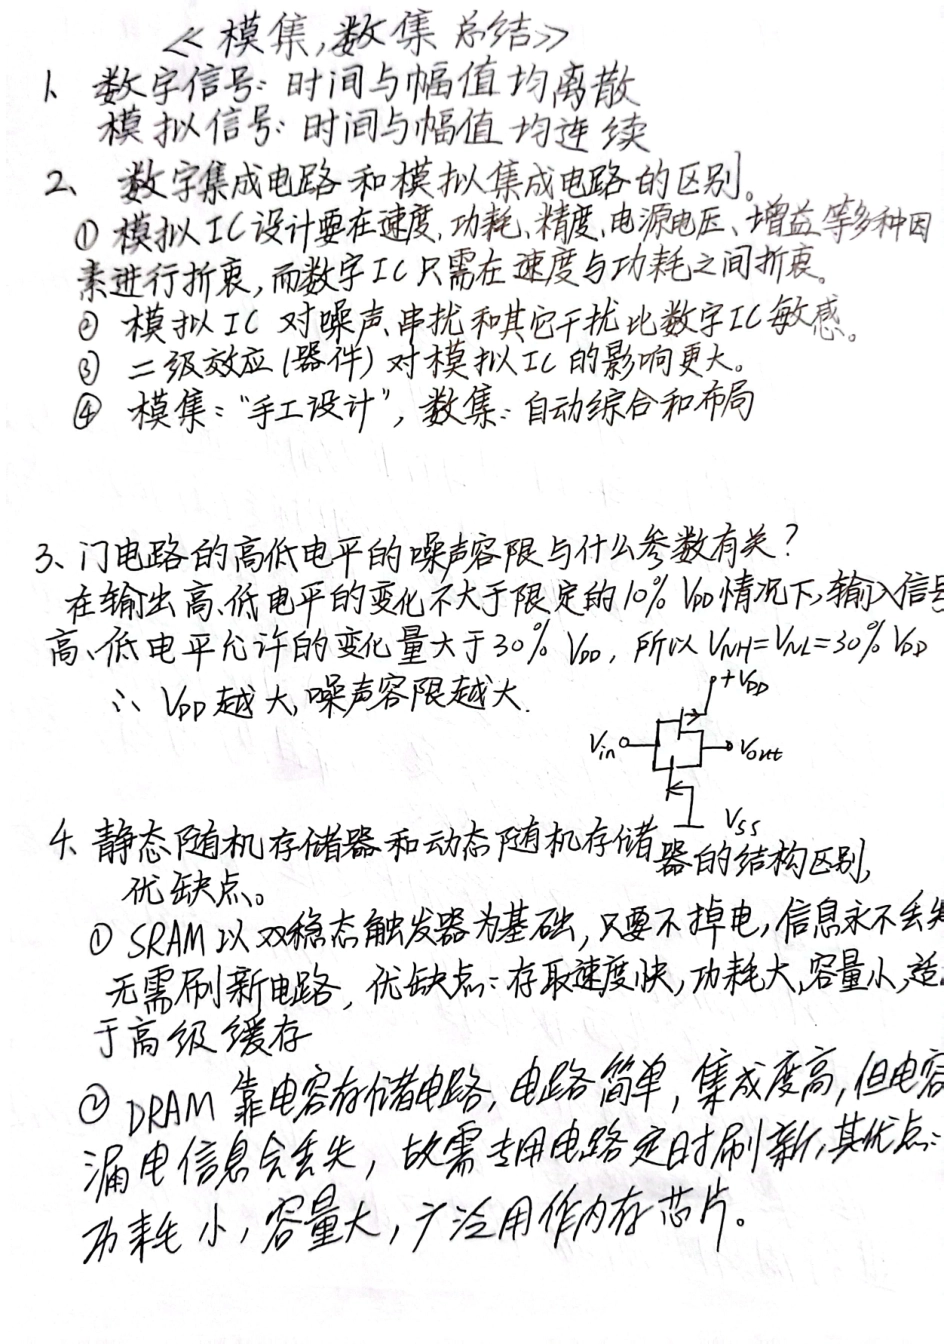 《模集,数集 总结》
1、数字信号: 时间与幅值均离散
模拟信号: 时间与幅值均连续
2、数字集成电路和模拟集成电路的区别。
① 模拟IC设计要在速度、功耗、精度、电源电压、增益等多种因
素进行折衷,而数字IC只需在速度与功耗之间折衷。
② 模拟IC 对噪声、串扰和其它干扰比数字IC敏感。
③ 二级效应(器件)对模拟IC的影响更大。
④ 模集:“手工设计”, 数集: 自动综合和布局
3、门电路的高低电平的噪声容限与什么参数有关?
在输出高、低电平的变化不大于限定的10% VDD情况下,输入信号
高、低电平允许的变化量大于30% VDD, 所以 VNH=VNL=30% VDD
∴ VDD越大,噪声容限越大.
+VDD
Vin
Vout
VSS
4、静态随机存储器和动态随机存储器的结构区别,
优缺点。
① SRAM以双稳态触发器为基础,只要不掉电,信息永不丢失
无需刷新电路, 优缺点: 存取速度快,功耗大,容量小,适
于高级缓存
② DRAM 靠电容存储电路,电路简单,集成度高,但电容
漏电信息会丢失, 故需专用电路定时刷新,其优点:
功耗小,容量大,广泛用作内存芯片。